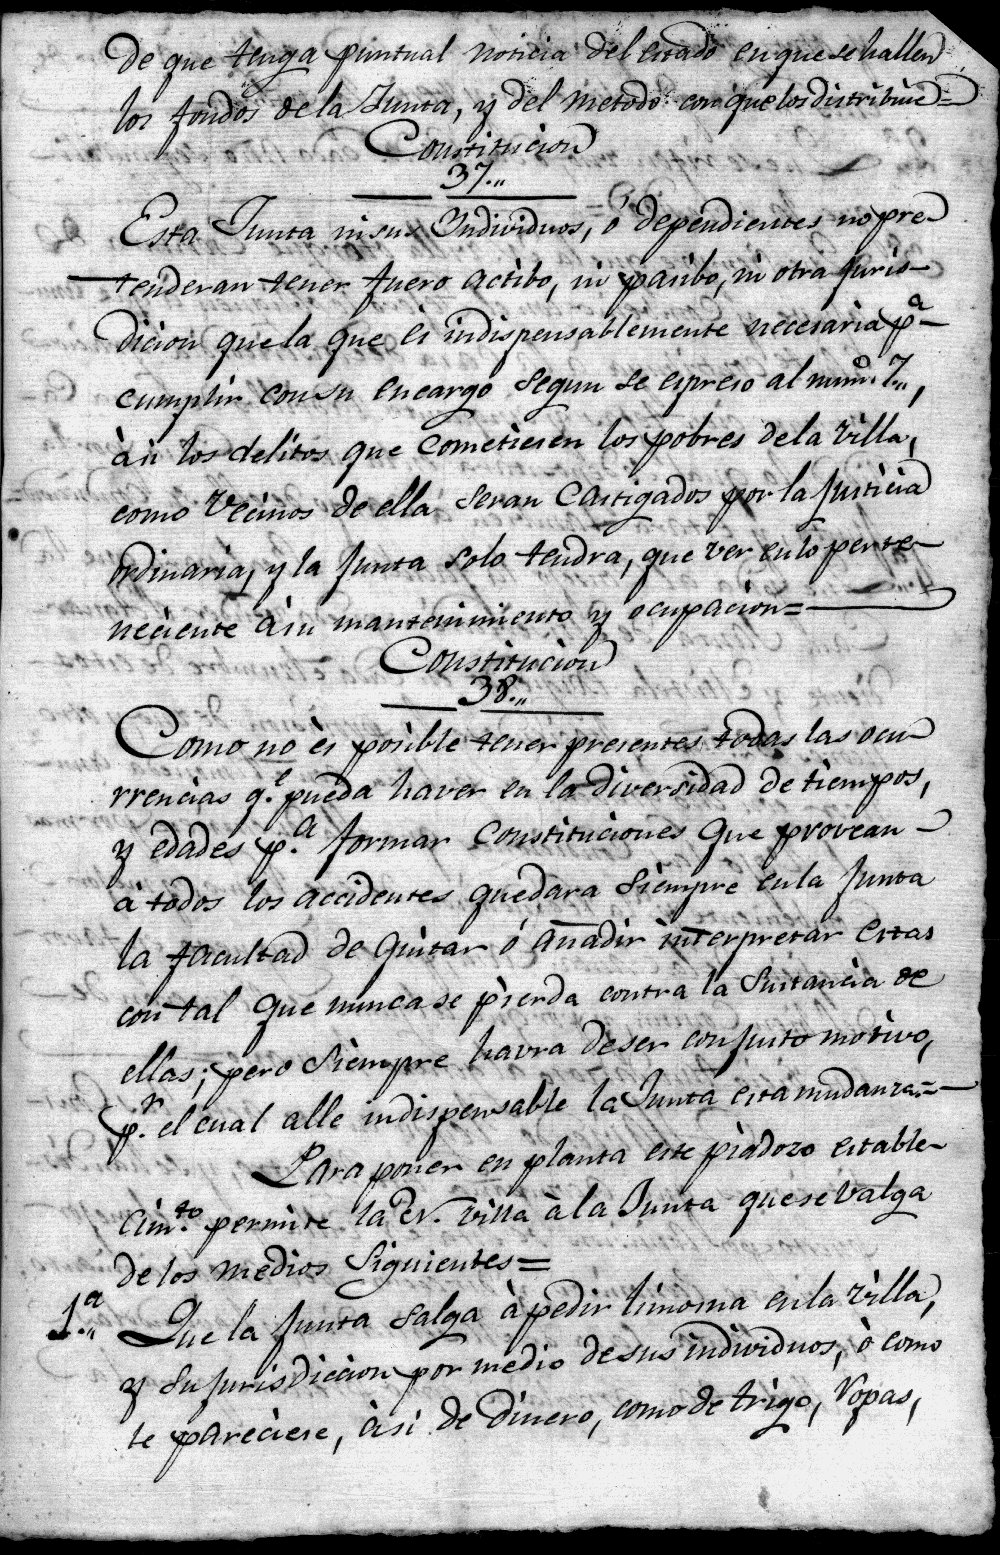 de que tenga puntual noticia del estado en que se hallen
los fondos de la Junta, y del metodo con que los distribuie=
Constitucion
37.,,
Esta Junta ni sus Individuos, ó dependientes no pre-
tenderan tener fuero actibo, ni pasibo, ni otra Juris-
dicion que la que es indispensablemente necesaria p.ª
cumplir con su encargo segun se espreso al num.º 7.,,
à si los delitos que cometiesen los pobres de la villa,
como vecinos de ella seran castigados por la Justicia
ordinaria, y la Junta solo tendra, que ver en lo perte-
neciente à su mantenimiento y ocupacion=
Constitucion
38.,,
Como no ès posible tener presentes todas las ocu
rrencias q.e pueda haver en la diversidad de tiempos,
y edades p.a formar constituciones que provean
á todos los accidentes quedara siempre en la Junta
la facultad de quitar ó añadir interpretar estas
con tal que nunca se pierda contra la sustancia de
ellas; pero siempre havra de ser con justo motivo,
p.r el cual alle indispensable la Junta esta mudanza.=
Para poner en planta este piadozo estable-
cim.to permite la ex. villa à la Junta que se valga
de los medios siguientes=
1.ª,, Que la Junta salga à pedir limosna en la villa,
y su jurisdiccion por medio de sus individuos, ò como
le pareciese, àsi de dinero, como de trigo, ropas,